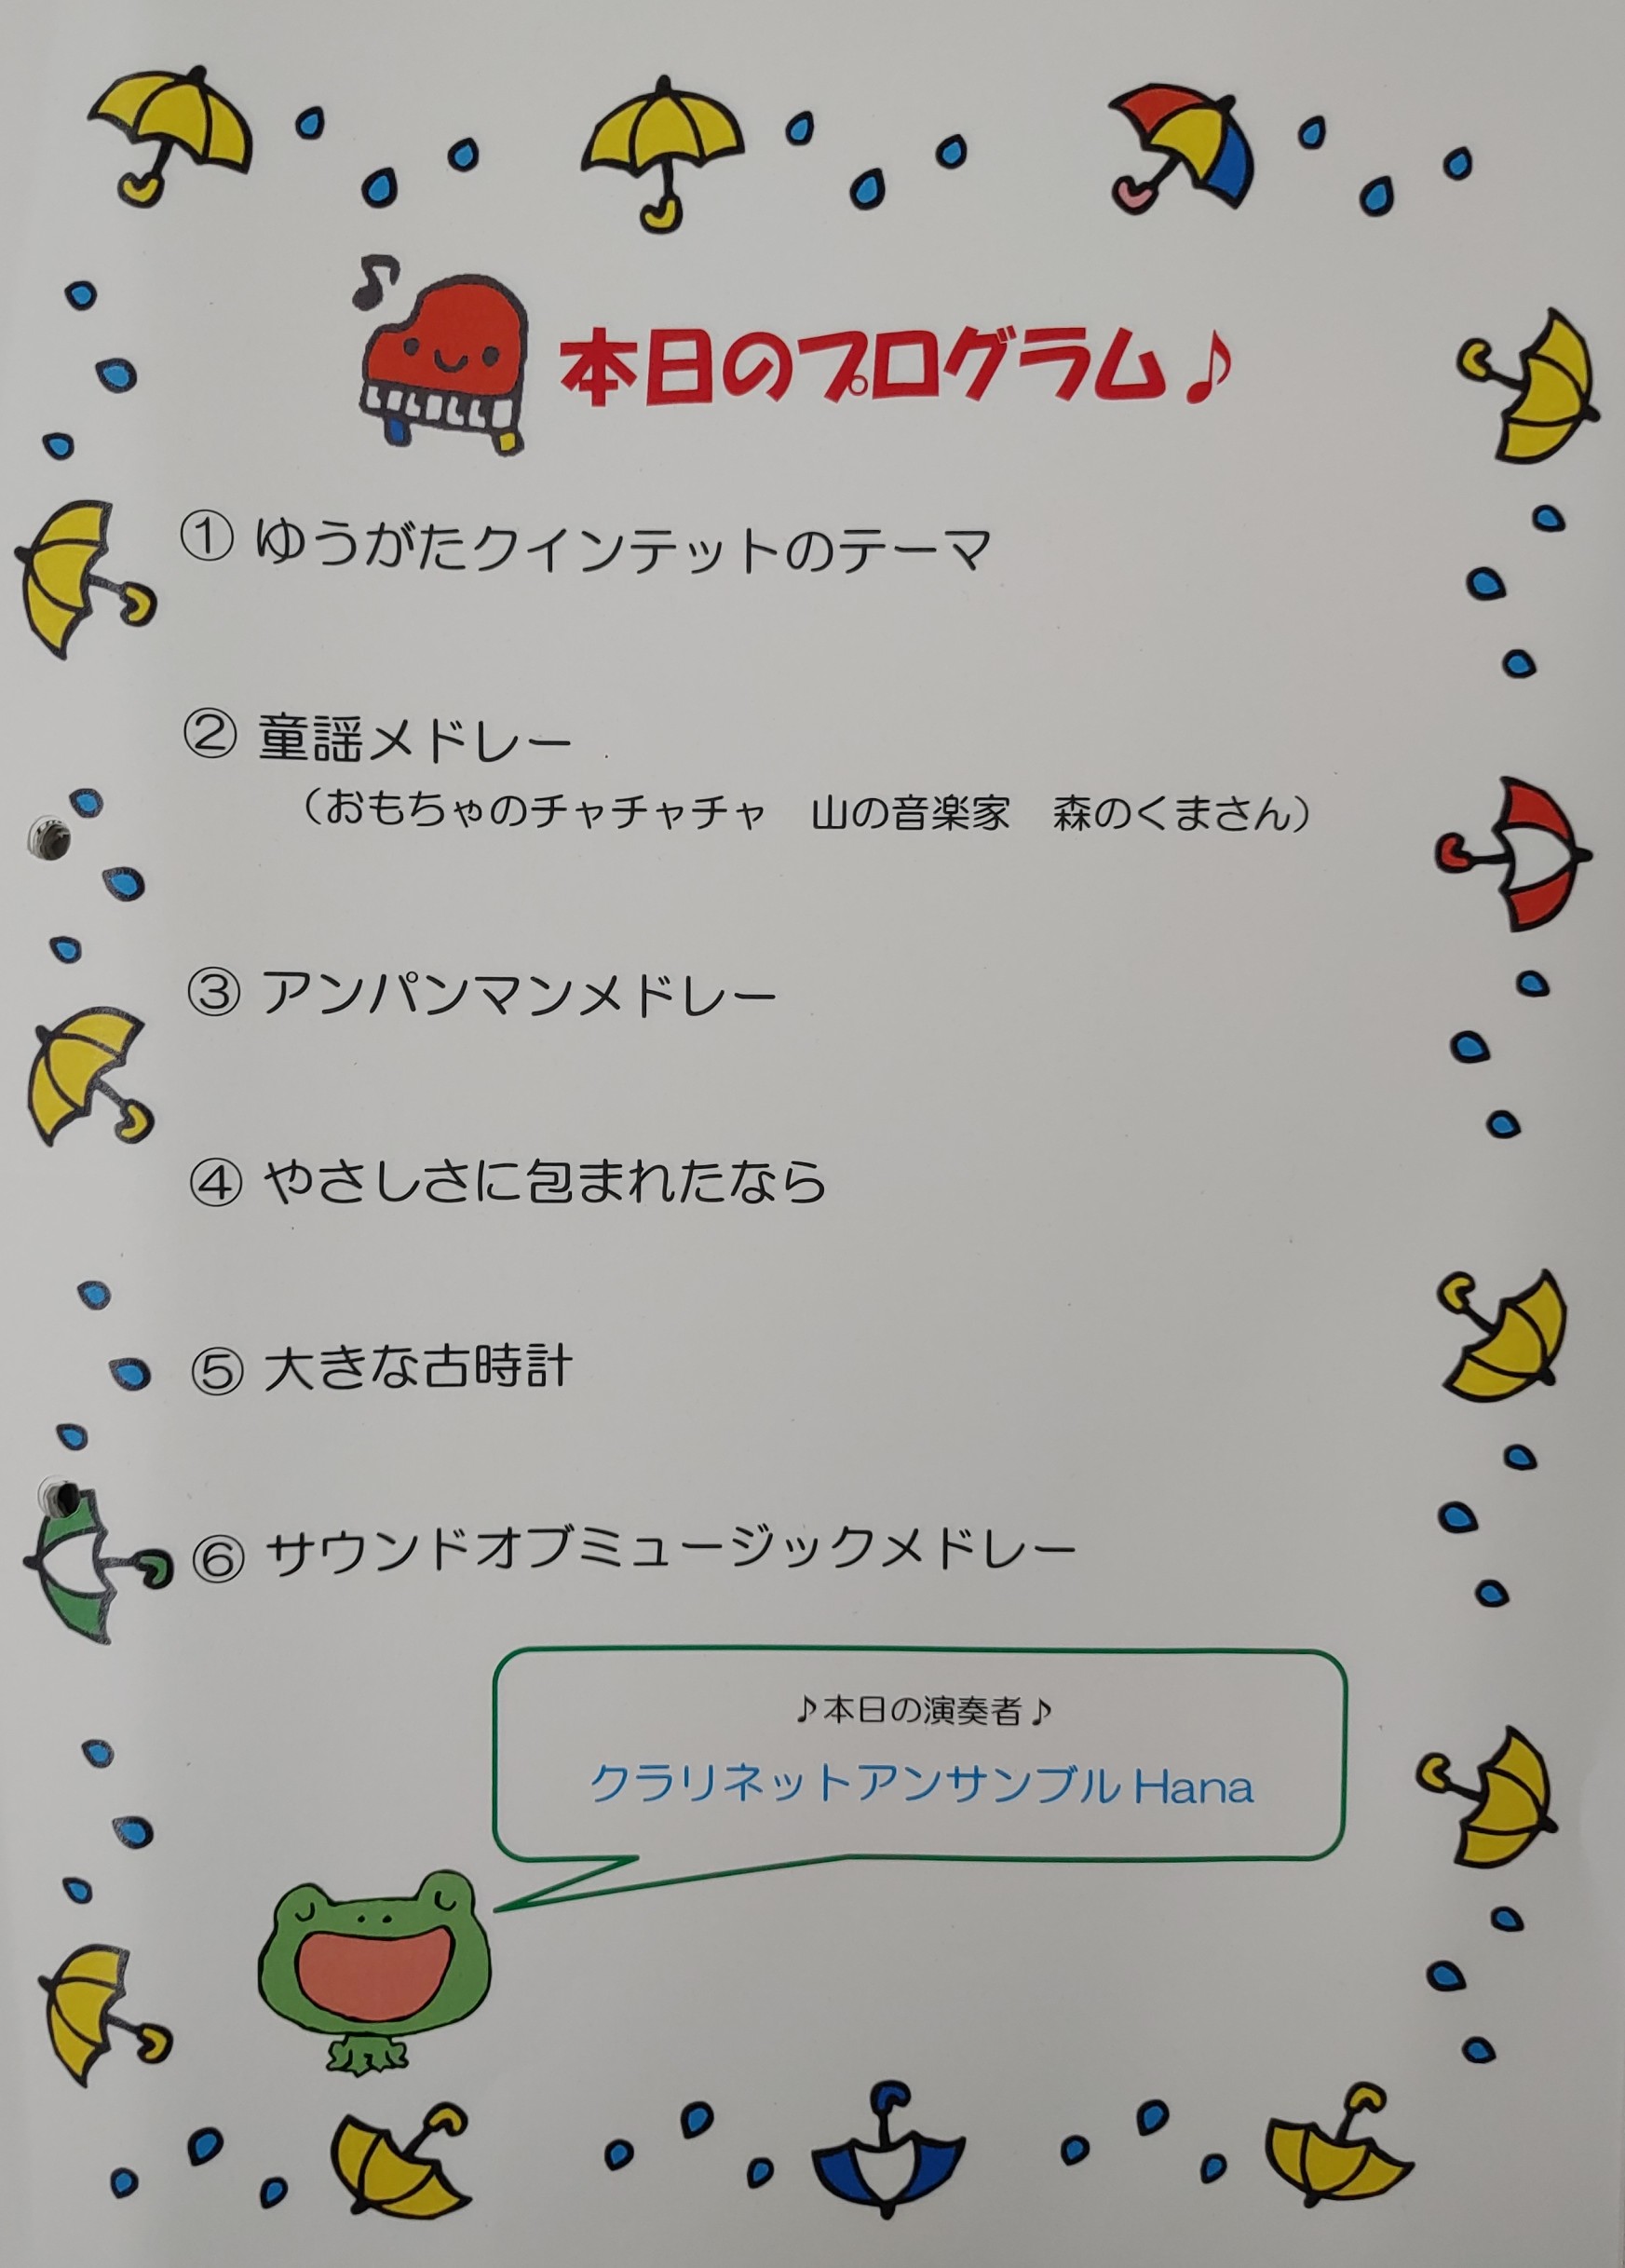 本日のプログラム♪
① ゆうがたクインテットのテーマ
② 童謡メドレー
（おもちゃのチャチャチャ　山の音楽家　森のくまさん）
③ アンパンマンメドレー
④ やさしさに包まれたなら
⑤ 大きな古時計
⑥ サウンドオブミュージックメドレー
♪本日の演奏者♪
クラリネットアンサンブル Hana